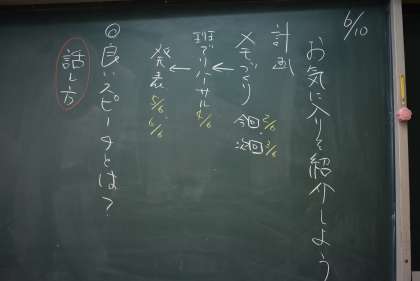 6/10
お気に入りを紹介しよう
計画
メモづくり 今回2/6 次回3/6
↓
班でリハーサル 4/6
↓
発表 5/6 6/6
◎良いスピーチとは？
話し方